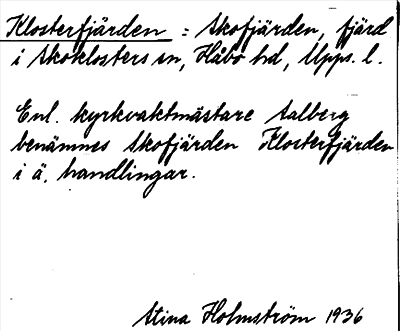 Klosterfjärden = Skofjärden, fjärd
i Skoklosters sn, Håbo hd, Upps. l.
Enl. kyrkvaktmästare Salberg
benämnes Skofjärden Klosterfjärden
i ä. handlingar.
Stina Holmström 1936